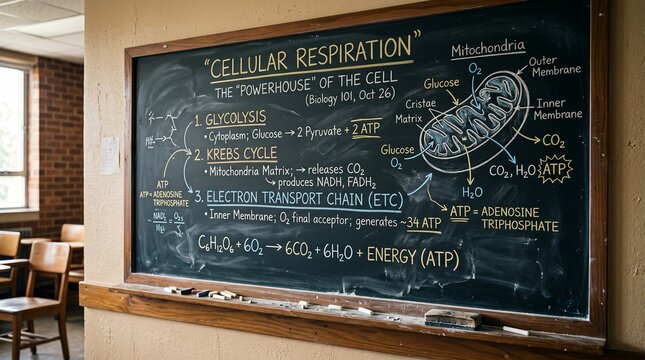 "CELLULAR RESPIRATION"
THE "POWERHOUSE" OF THE CELL
(Biology 101, Oct 26)
1. GLYCOLYSIS
• Cytoplasm; Glucose → 2 Pyruvate + 2 ATP
2. KREBS CYCLE
• Mitochondria Matrix; → releases CO₂
→ produces NADH, FADH₂
3. ELECTRON TRANSPORT CHAIN (ETC)
• Inner Membrane; O₂ final acceptor; generates ~34 ATP
C₆H₁₂O₆ + 6O₂ → 6CO₂ + 6H₂O + ENERGY (ATP)
ATP
ATP = ADENOSINE
TRIPHOSPHATE
Mitochondria
O₂
Outer
Membrane
Glucose
Cristae
Matrix
Inner
Membrane
Glucose
O₂
CO₂
CO₂, H₂O
ATP
H₂O
ATP = ADENOSINE
TRIPHOSPHATE